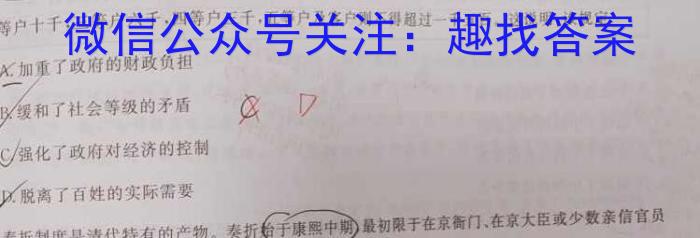 等户十千,
四等户三千,
得超过一
微信公众号关注：趣找答案
A.加重了政府的财政负担
B.缓和了社会等级的矛盾
C D
C.强化了政府对经济的控制
D.脱离了百姓的实际需要
奏折制度是清代特有的产物。奏折始于康熙中期,最初限于在京衙门、在京大臣或少数亲信官员